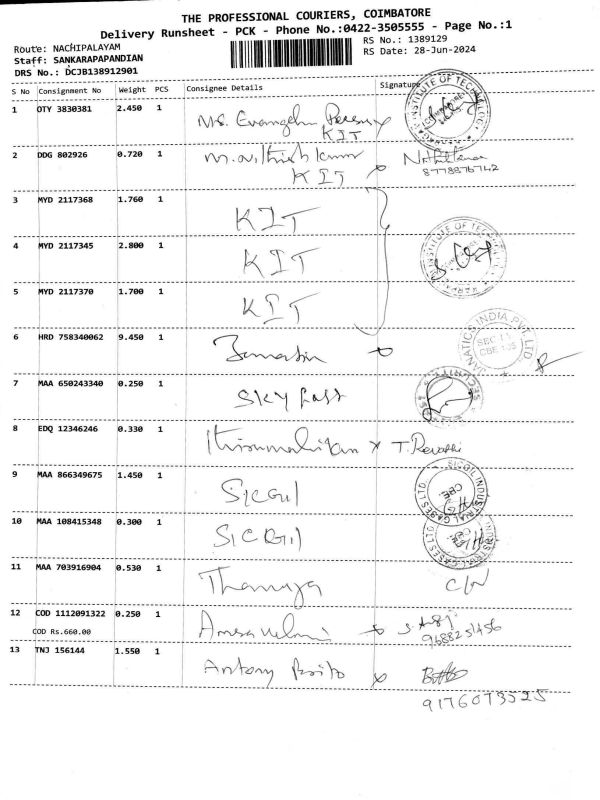 THE PROFESSIONAL COURIERS, COIMBATORE
Delivery Runsheet - PCK - Phone No.:0422-3505555 - Page No.:1
Route: NACHIPALAYAM
RS No.: 1389129
Staff: SANKARAPAPANDIAN
RS Date: 28-Jun-2024
DRS No.: DCJB138912901
S No Consignment No Weight PCS Consignee Details Signature
1 OTY 3830381 2.450 1 Ms. Evangelin
KIT
2 DDG 802926 0.720 1 KIT
8778876742
3 MYD 2117368 1.760 1 KIT
4 MYD 2117345 2.800 1 KIT
5 MYD 2117370 1.700 1 KIT
6 HRD 758340062 9.450 1
JANATICS INDIA PVT. LTD.
7 MAA 650243340 0.250 1 SKY
SECURITY
8 EDQ 12346246 0.330 1 T. Revathi
9 MAA 866349675 1.450 1 SICGIL
SICGIL INDUSTRIAL GASES LTD.
CBE.
10 MAA 108415348 0.300 1 SICGIL
11 MAA 703916904 0.530 1
12 COD 1112091322 0.250 1
COD Rs.660.00
9688251456
13 TNJ 156144 1.550 1 Antony
9176073525